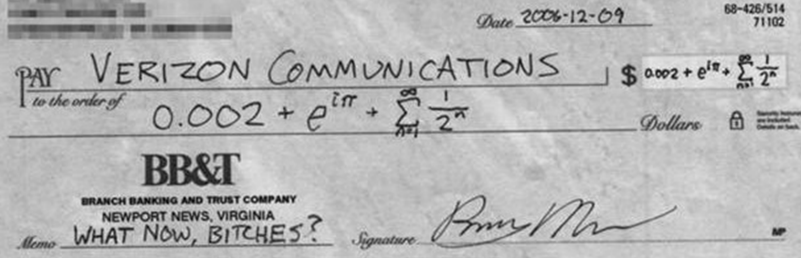 Date 2006-12-09
68-426/514
71102
PAY to the order of VERIZON COMMUNICATIONS $ 0.002 + e^{iπ} + ∑_{n=1}^{∞} 1/2^n
0.002 + e^{iπ} + ∑_{n=1}^{∞} 1/2^n Dollars
Security features are included. Details on back.
BB&T
BRANCH BANKING AND TRUST COMPANY
NEWPORT NEWS, VIRGINIA
Memo WHAT NOW, BITCHES? Signature
MP